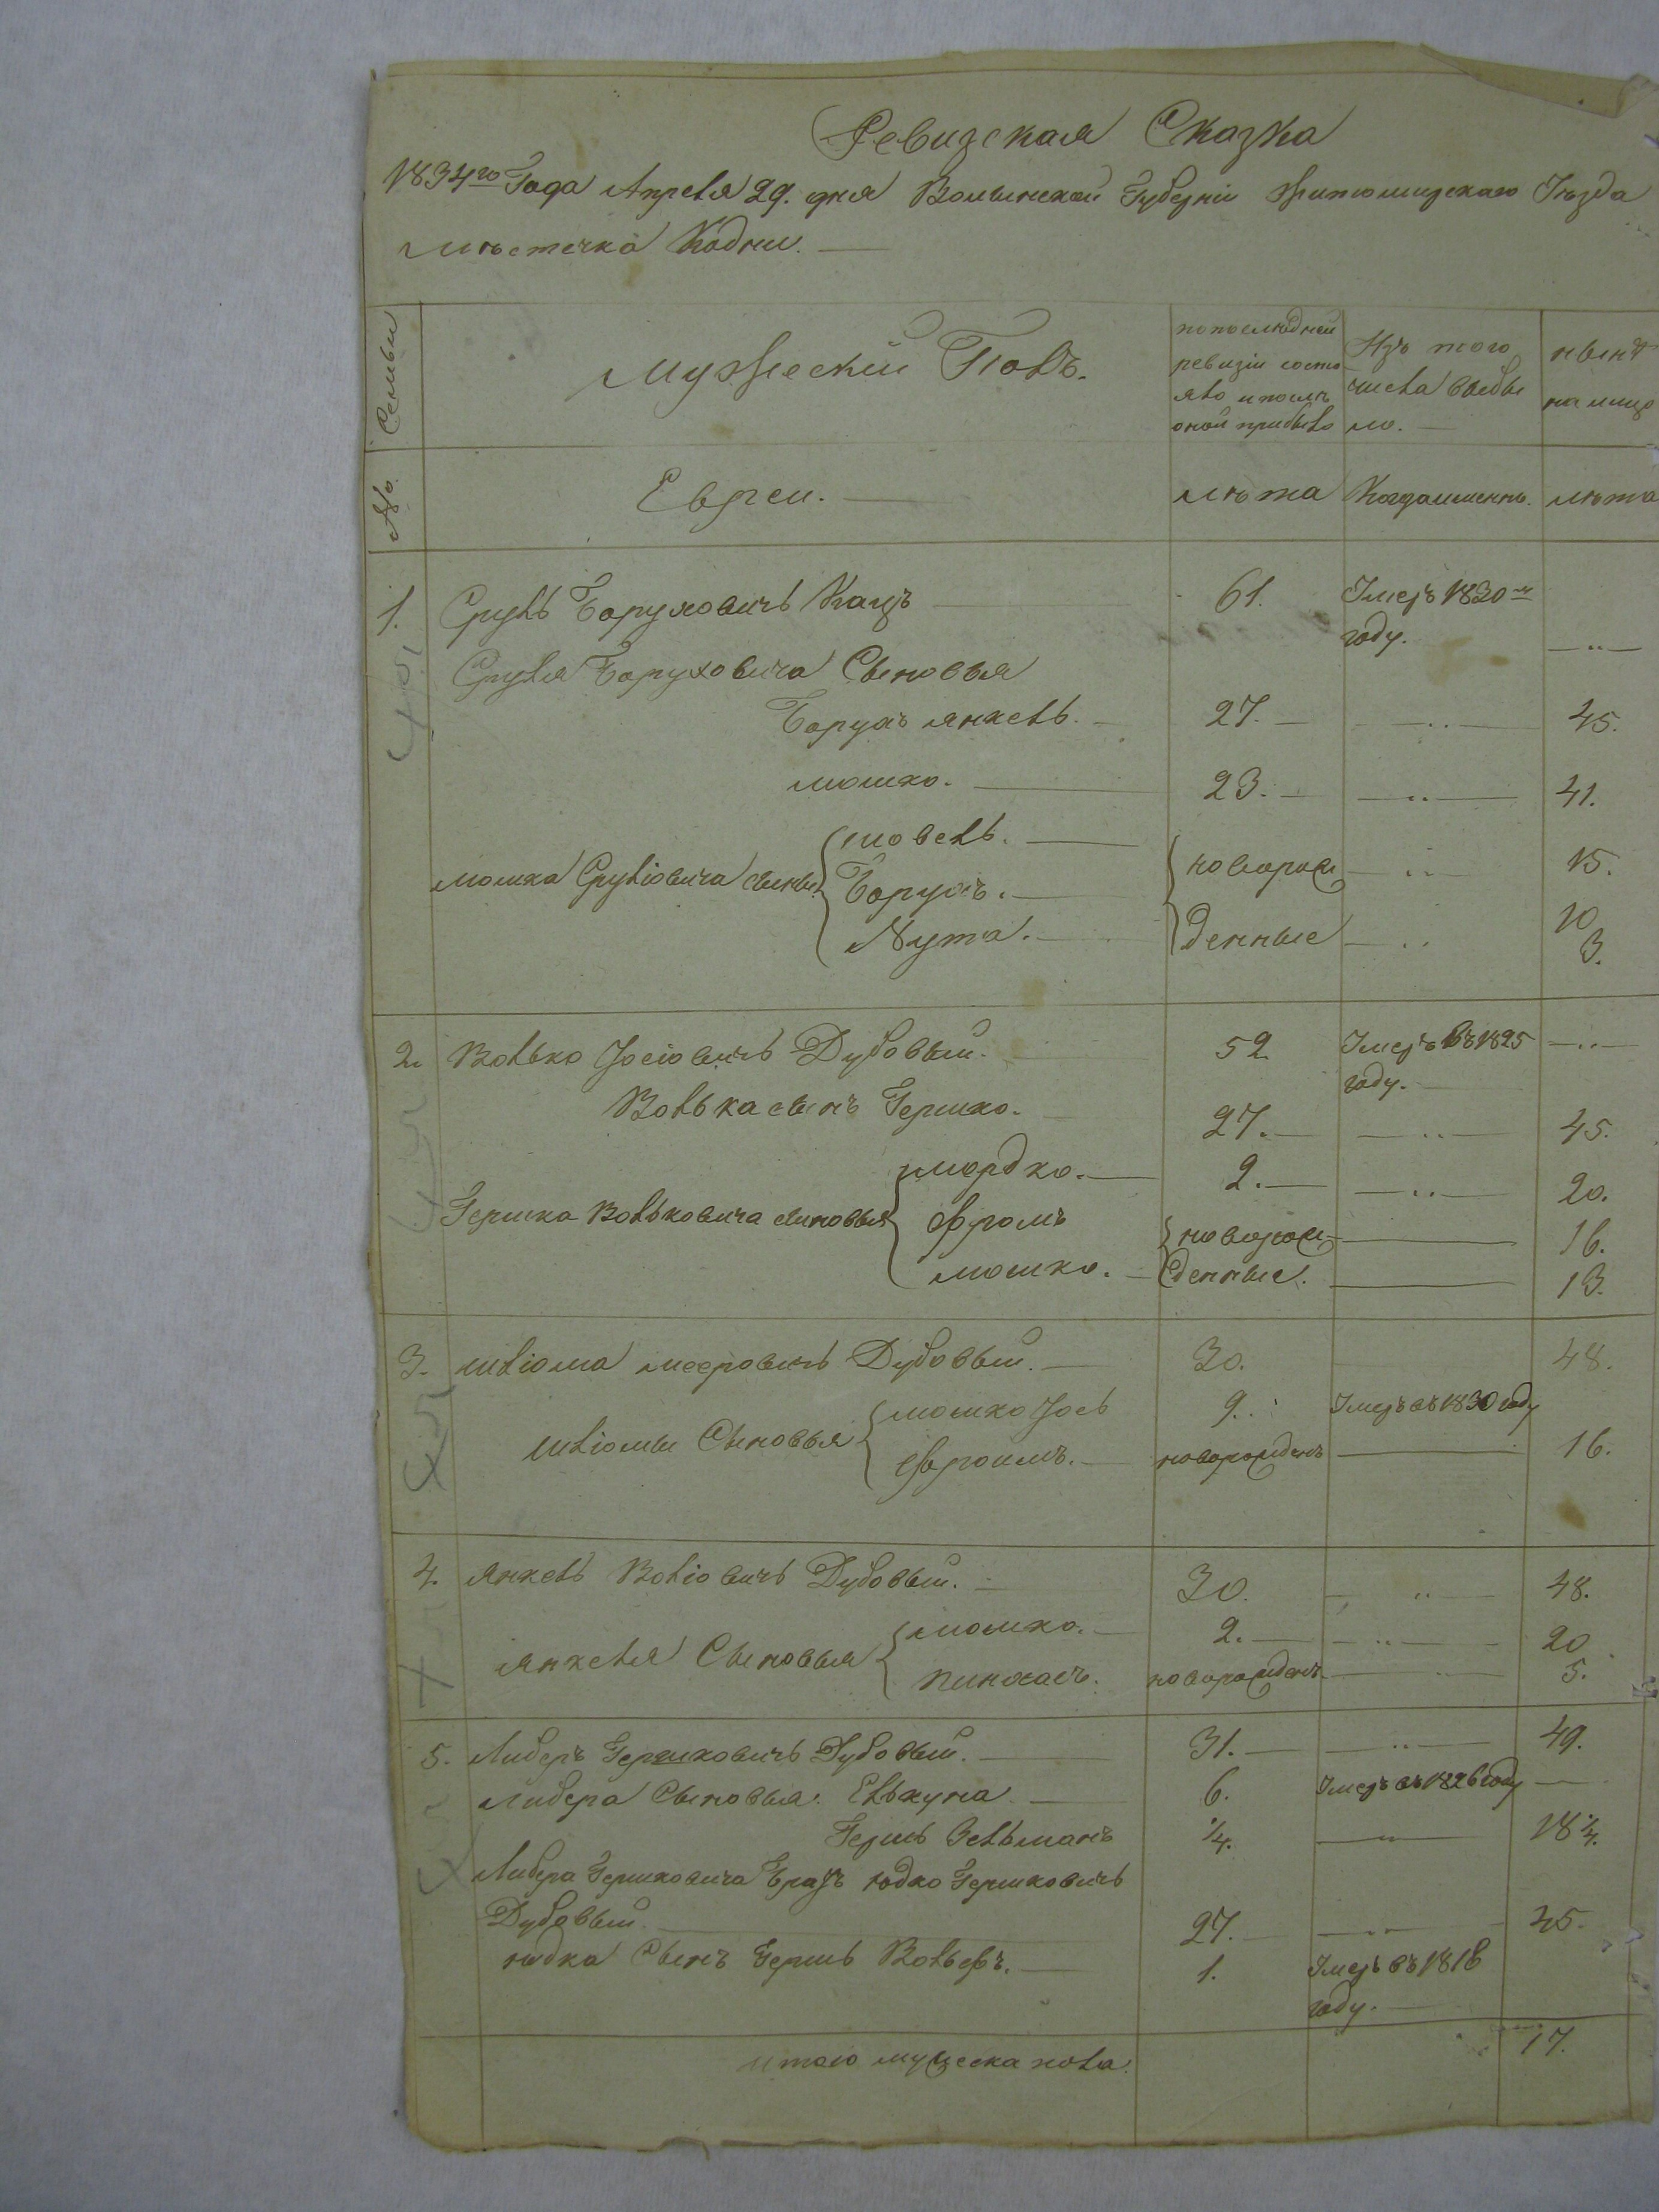 Ревизская Сказка
1834го Года Апреля 29. дня Волынской Губерніи Житомирскаго Уезда
мѣстечка Кодни.
Семьи
Мужескій Полъ.
по последней ревизіи состояло и послѣ оной прибыло
Изъ того числа выбыло.
нынѣ на лицо
№.
Евреи.
лѣта
Когда имянно.
лѣта
1. Сруль Боруховичъ Кацъ 61. Умеръ 1830м году.
Сруля Боруховича Сыновья
Борухъ Янкель. 27. 45.
Мошко. 23. 41.
Мошка Сруліовича сыны Шовель. новорожденные 15.
Борухъ. 10
Нута. 3.
2. Волько Іосіовичь Дубовый. 52 Умеръ въ 1825 году.
Волька сынъ Гершко. 27. 45.
Гершка Вольковича сыновья Мордко. 2. 20.
Фроимъ новорожденные. 16.
Мошко. 13.
3. Шліома Мееровичь Дубовый. 30. 48.
Шліомы Сыновья Мошко Іось 9. Умеръ въ 1830 году
Фроимъ. новорожденъ 16.
4. Янкель Воліовичь Дубовый. 30. 48.
Янкеля Сыновья Мошко. 2. 20
Пинхасъ. новорожденъ. 5.
5. Либеръ Гершковичь Дубовый. 31. 49.
Либера Сыновья: Елькуна 6. Умеръ въ 1826 году
Гершь Зельманъ 1/4. 18 1/4.
Либера Гершковича братъ Юдко Гершковичь
Дубовый. 27. 45.
Юдка Сынъ Гершь Вольфъ. 1. Умеръ въ 1818 году.
итого мужеска пола. 17.